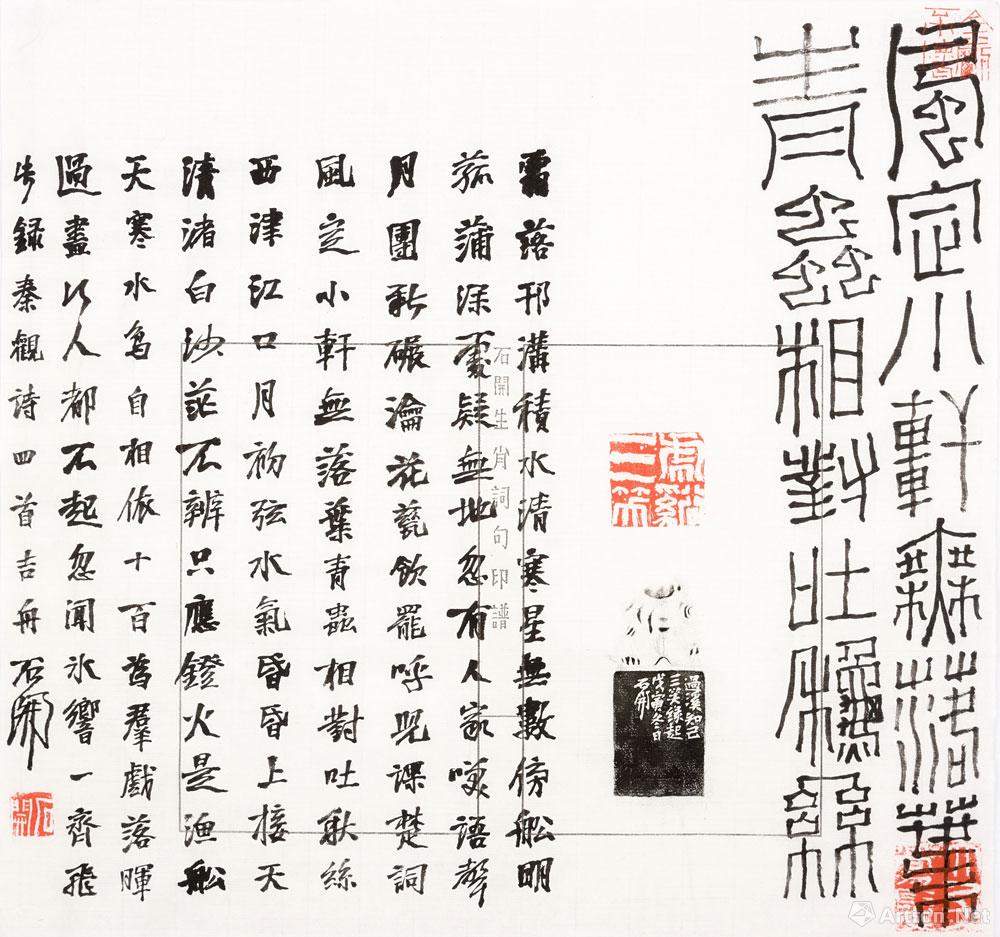 風定小軒無落葉
青蟲相對吐秋絲
虎谿三笑
三笑緣起
戊寅冬日
石開
石開生肖詞句印譜
霜落邗溝積水清寒星無數傍船明
菰蒲深處疑無地忽有人家咲語聲
月團新碾瀹花甆飲罷呼兒課楚詞
風定小軒無落葉青蟲相對吐秋絲
西津江口月初弦水氣昏昏上接天
清渚白沙茫不辨只應鐙火是漁船
天寒水鳥自相依十百為羣戲落暉
過盡行人都不起忽聞氷響一齊飛
錄秦觀詩四首吉舟石開
石開
Artson.Net